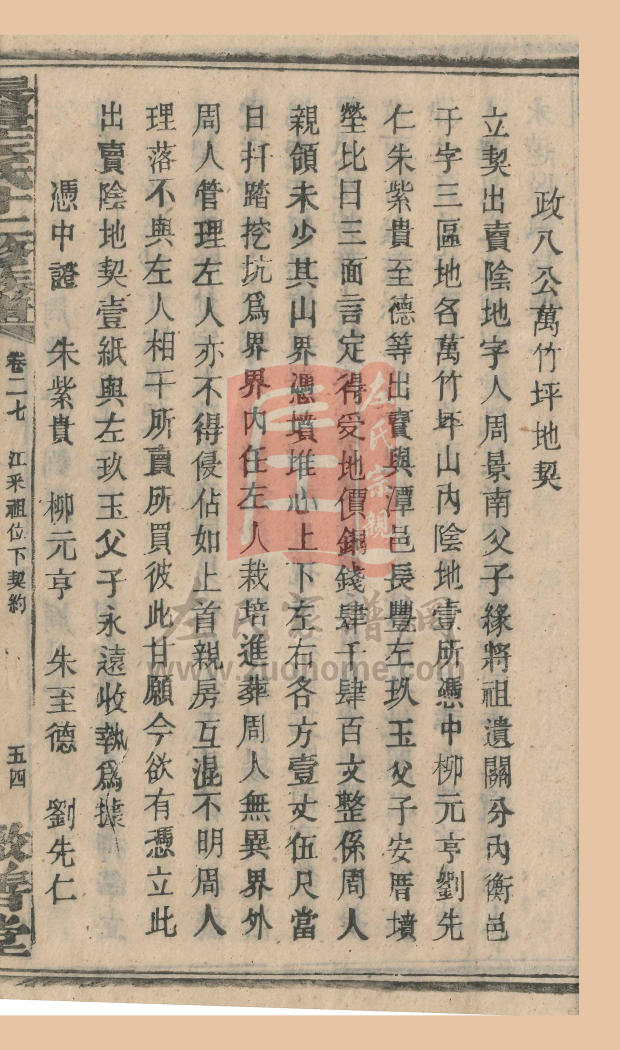 政八公萬竹坪地契
立契出賣陰地字人周景南父子緣將祖遺關分內衡邑
干字三區地各萬竹坪山內陰地壹所憑中柳元亨劉先
仁朱紫貴至德等出賣與潭邑長豐左玖玉父子安厝墳
塋比日三面言定得受地價銅錢肆千肆百文整係周人
親領未少其山界憑墳堆心上下左右各方壹丈伍尺當
日扦踏挖坑爲界界內任左人栽培進葬周人無異界外
周人管理左人亦不得侵佔如上首親房互混不明周人
理落不與左人相干所賣所買彼此甘願今欲有憑立此
出賣陰地契壹紙與左玖玉父子永遠收執爲據
憑中證　朱紫貴　柳元亨　朱至德　劉先仁
卷二七　江釆祖位下契約　五四
左氏宗親
左氏家譜網
www.zuohome.com